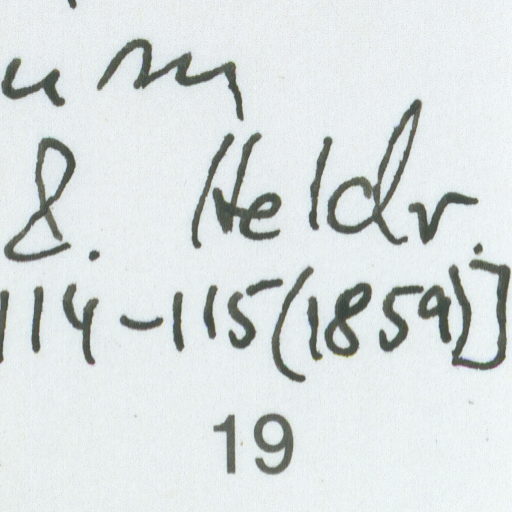 & Heldr.
114-115(1859)]
19